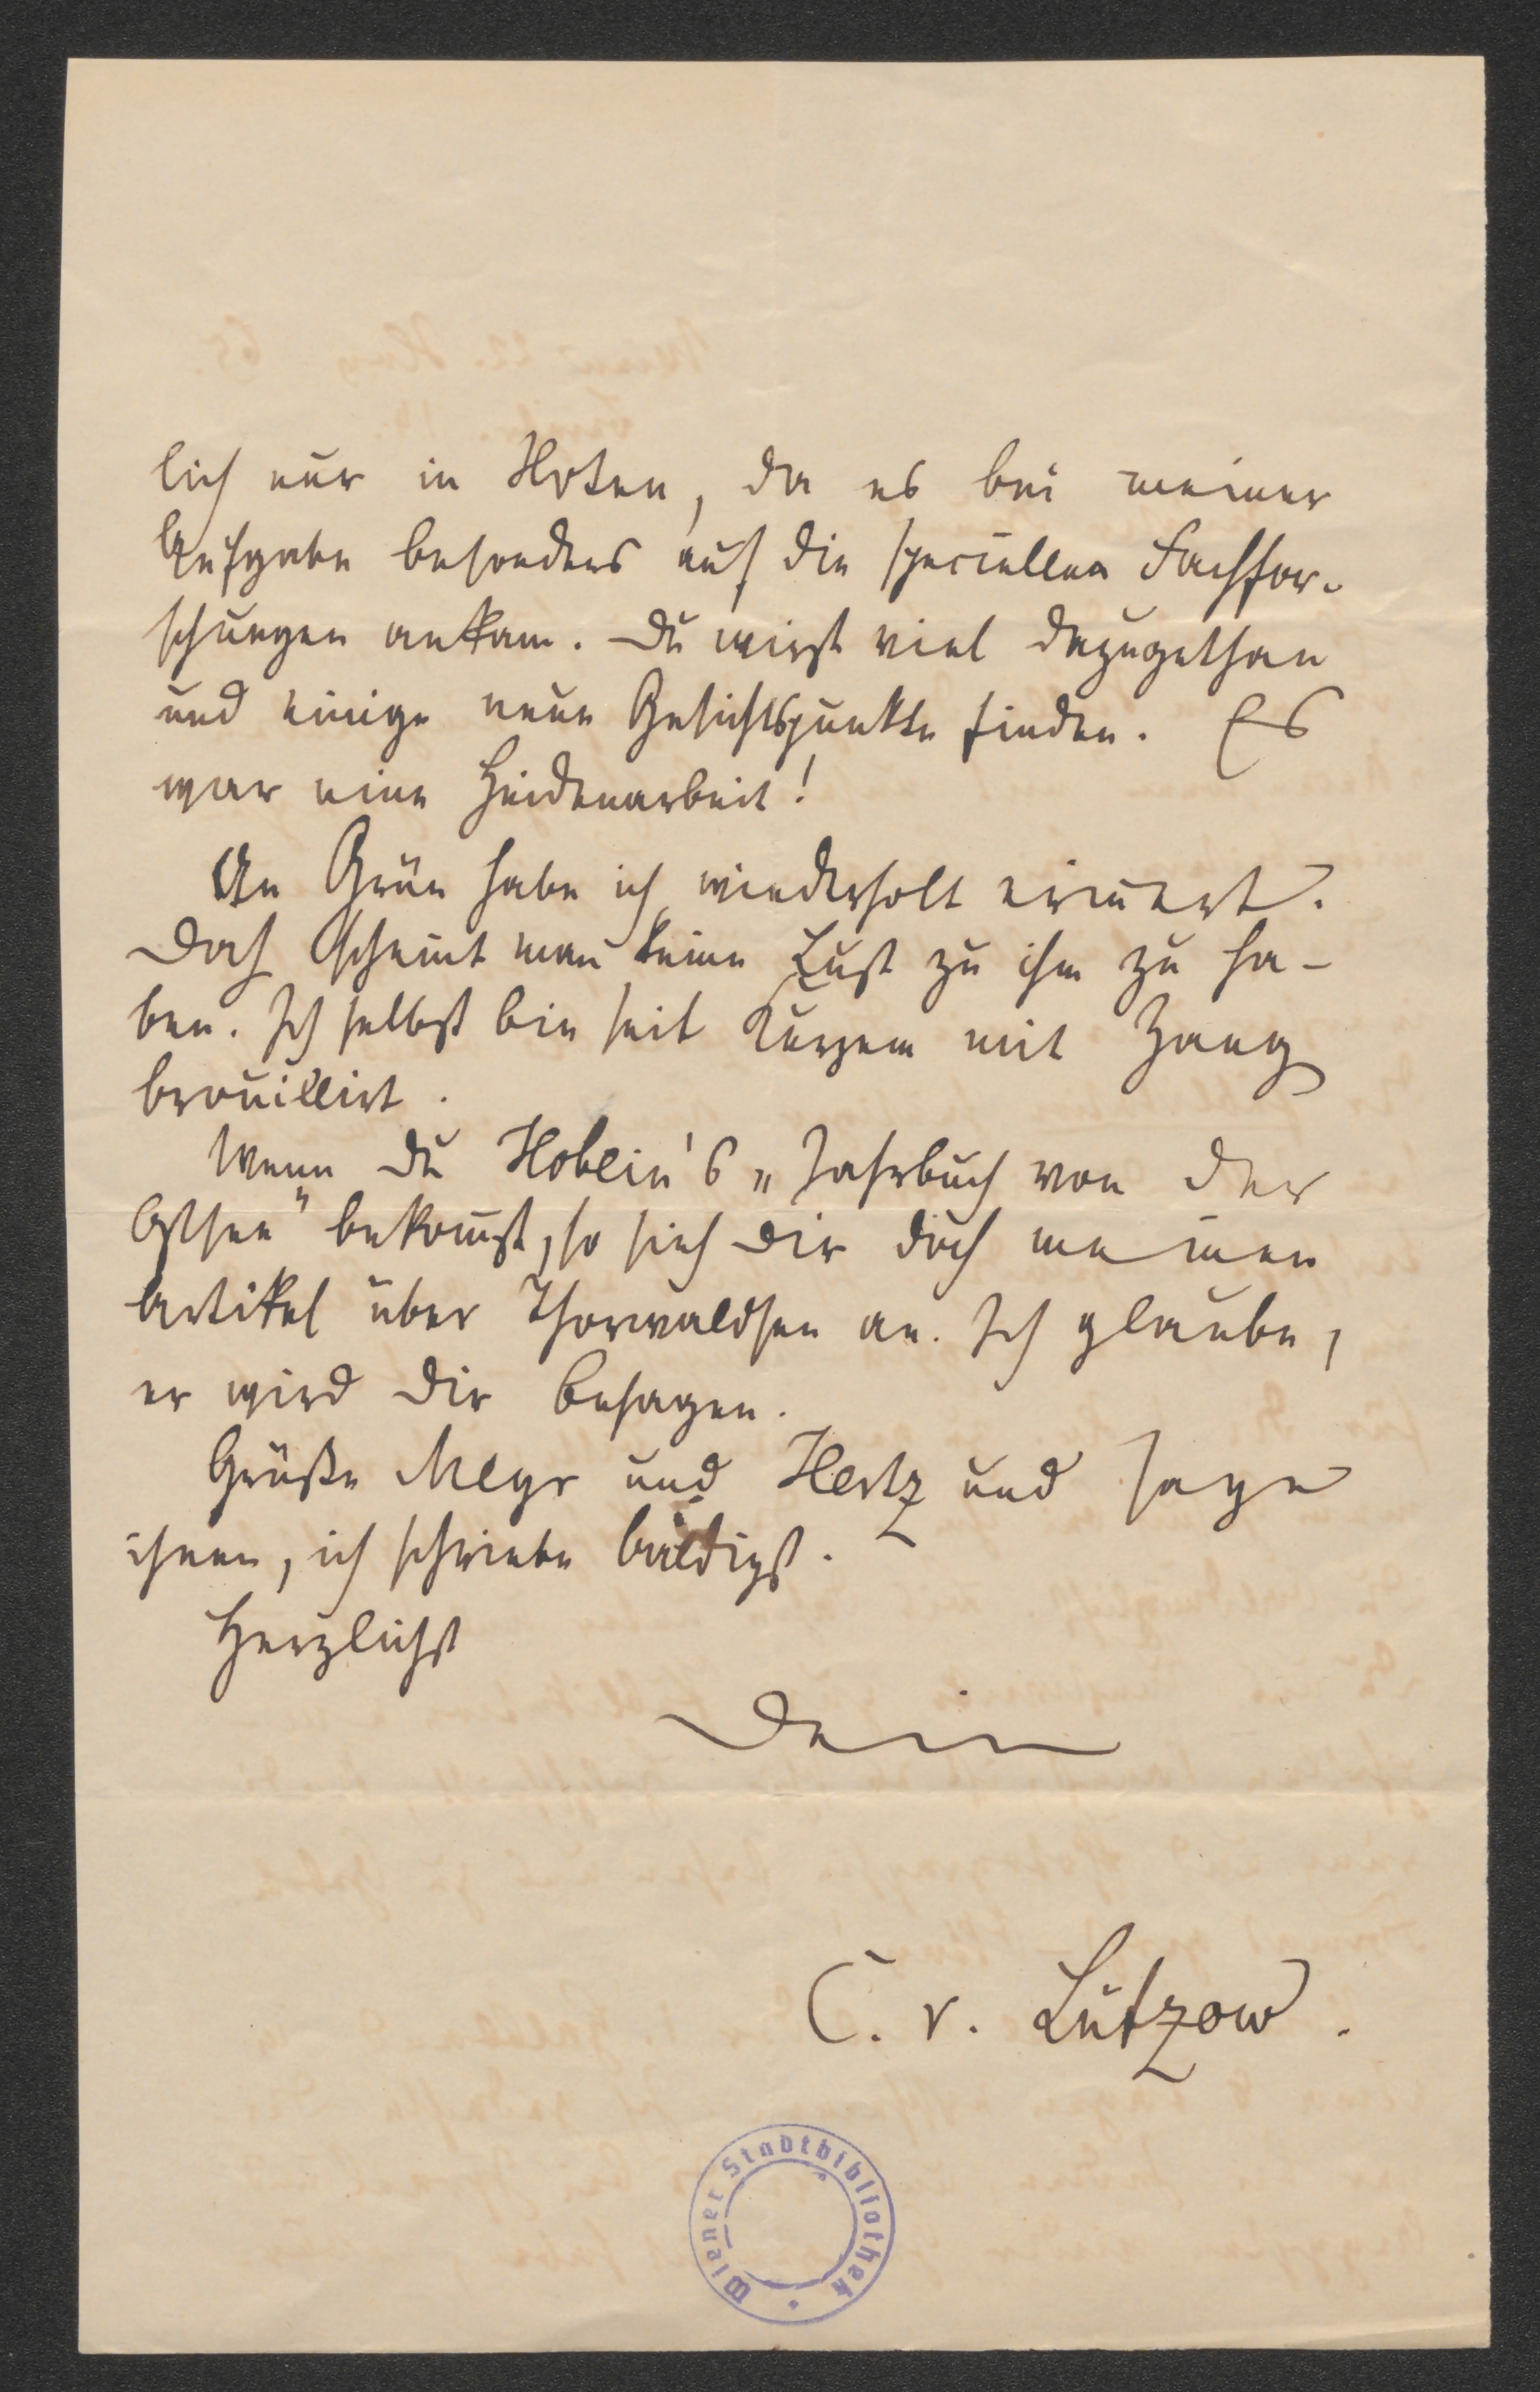 lich nur in Noten, da es bei meiner
Aufgabe besonders auf die speciellen Fachfor-
schungen ankam. Du wirst viel dazugethan
und einige neue Gesichtspunkte finden. Es
war eine Heidenarbeit!
An Grün habe ich wiederholt erinnert.
Doch scheint man keine Lust zu ihm zu ha-
ben. Ich selbst bin seit Kurzem mit Zang
brouillirt.
Wenn Du „Jahrbuch von der
Ostsee" bekommst, so sieh Dir doch meinen
Artikel über Thorwaldsen an. Ich glaube,
er wird Dir behagen.
Grüße Meyr und Hertz und sage
ihnen, ich schriebe baldigst.
Herzlichst
Dein
C. v. Lützow.
Wiener Stadtbibliothek